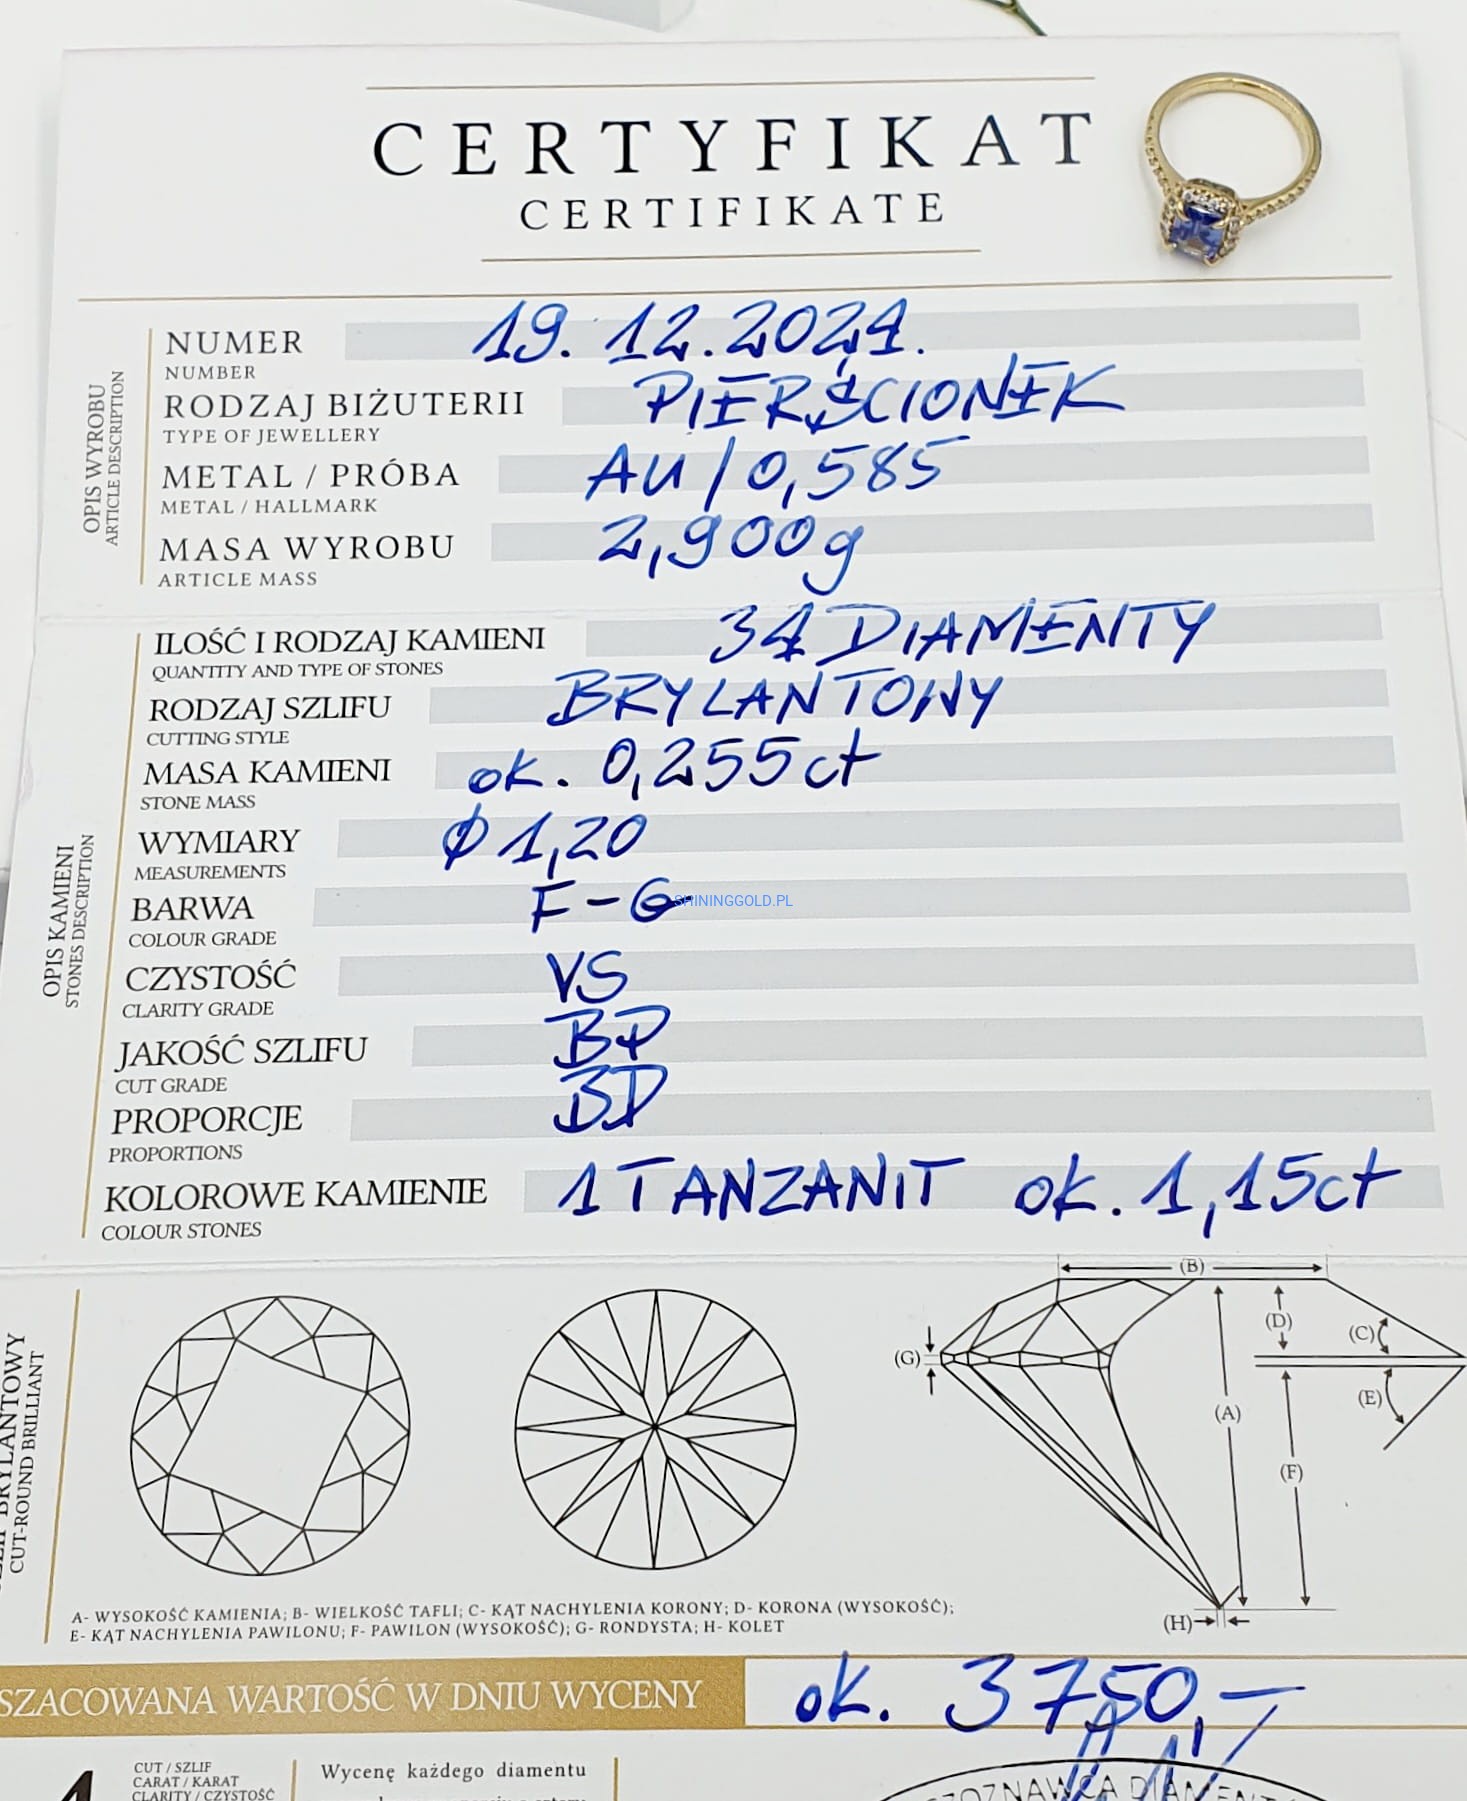 CERTYFIKAT
CERTIFIKATE
OPIS WYROBU
ARTICLE DESCRIPTION
NUMER 19.12.2024.
NUMBER
RODZAJ BIŻUTERII PIERŚCIONEK
TYPE OF JEWELLERY
METAL / PRÓBA AU/0,585
METAL / HALLMARK
MASA WYROBU 2,900g
ARTICLE MASS
OPIS KAMIENI
STONES DESCRIPTION
ILOŚĆ I RODZAJ KAMIENI 34 DIAMENTY
QUANTITY AND TYPE OF STONES
RODZAJ SZLIFU BRYLANTOWY
CUTTING STYLE
MASA KAMIENI ok. 0,255ct
STONE MASS
WYMIARY Ø 1,20
MEASUREMENTS
BARWA F-G
SHININGGOLD.PL
COLOUR GRADE
CZYSTOŚĆ VS
CLARITY GRADE
JAKOŚĆ SZLIFU BD
CUT GRADE
PROPORCJE BD
PROPORTIONS
KOLOROWE KAMIENIE 1 TANZANIT ok. 1,15ct
COLOUR STONES
BRYLANTOWY
CUT-ROUND BRILLIANT
(B)
(D)
(C)
(G)
(E)
(A)
(F)
(H)
A- WYSOKOŚĆ KAMIENIA; B- WIELKOŚĆ TAFLI; C- KĄT NACHYLENIA KORONY; D- KORONA (WYSOKOŚĆ);
E- KĄT NACHYLENIA PAWILONU; F- PAWILON (WYSOKOŚĆ); G- RONDYSTA; H- KOLET
SZACOWANA WARTOŚĆ W DNIU WYCENY ok. 3750,-
CUT / SZLIF
CARAT / KARAT
CLARITY / CZYSTOŚĆ
Wycenę każdego diamentu